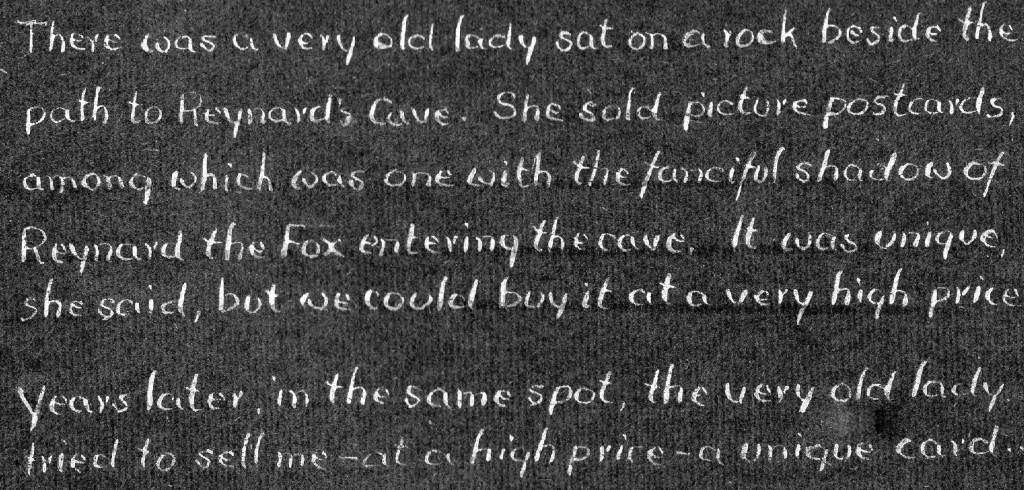 There was a very old lady sat on a rock beside the
path to Reynard's Cave. She sold picture postcards,
among which was one with the fanciful shadow of
Reynard the Fox entering the cave. It was unique,
she said, but we could buy it at a very high price
Years later, in the same spot, the very old lady
tried to sell me - at a high price - a unique card..